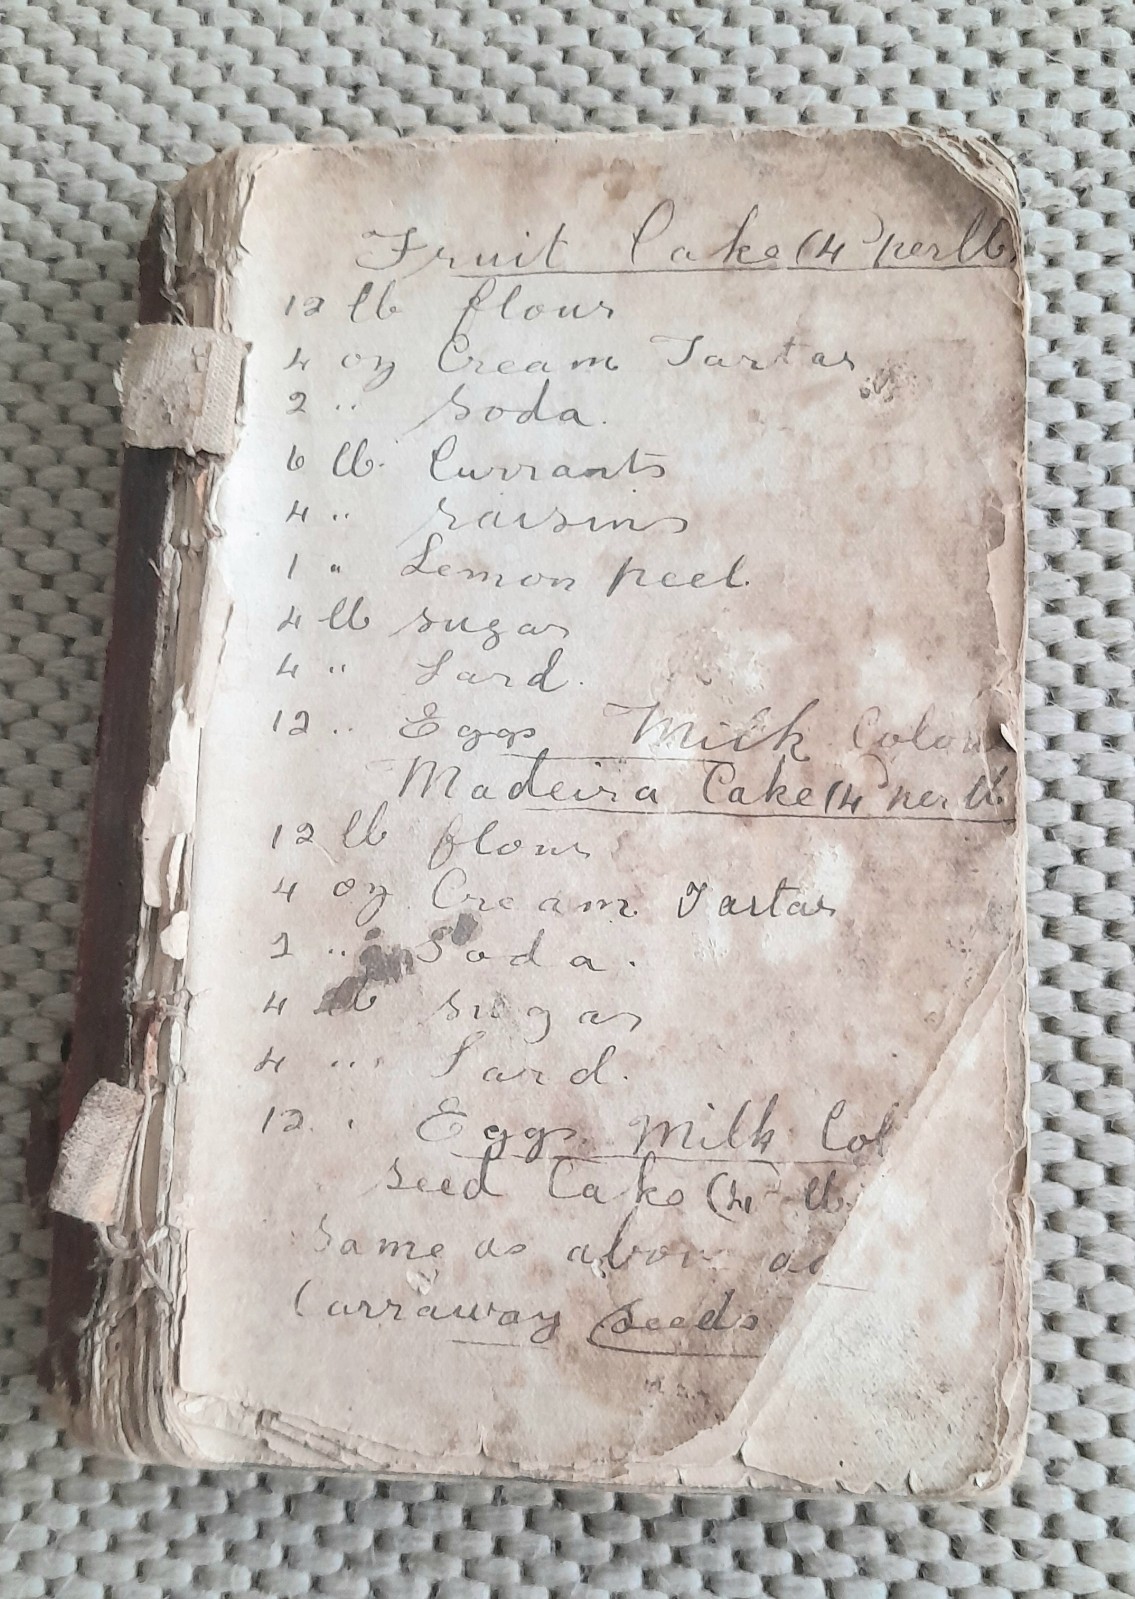 Fruit Cake (4 per lb)
12 lb flour
4 oz Cream Tartar
2 " Soda.
6 lb. Currants
4 " raisins
1 " Lemon peel
4 lb sugar
4 " Lard.
12 " Eggs Milk Colour
Madeira Cake (4 per lb
12 lb flour
4 oz Cream Tartar
2 " Soda.
4 lb sugar
4 " Lard.
12 " Eggs Milk Col
Seed Cake (4 lb
Same as above
Carraway Seeds